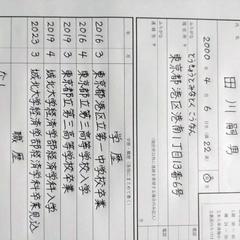 田川嗣男
2000年4月6日
22
男
ふりがな
とうきょうとみなとくこうなん
東京都港区港南1丁目13番6号
ふりがな
学歴
2016 3 東京都港区立第一中学校卒業
2016 4 東京都立第三高等学校入学
2019 3 東京都立第三高等学校卒業
2019 4 城北大学経済学部経済学科入学
2023 3 城北大学経済学部経済学科卒業見込
職歴
なし